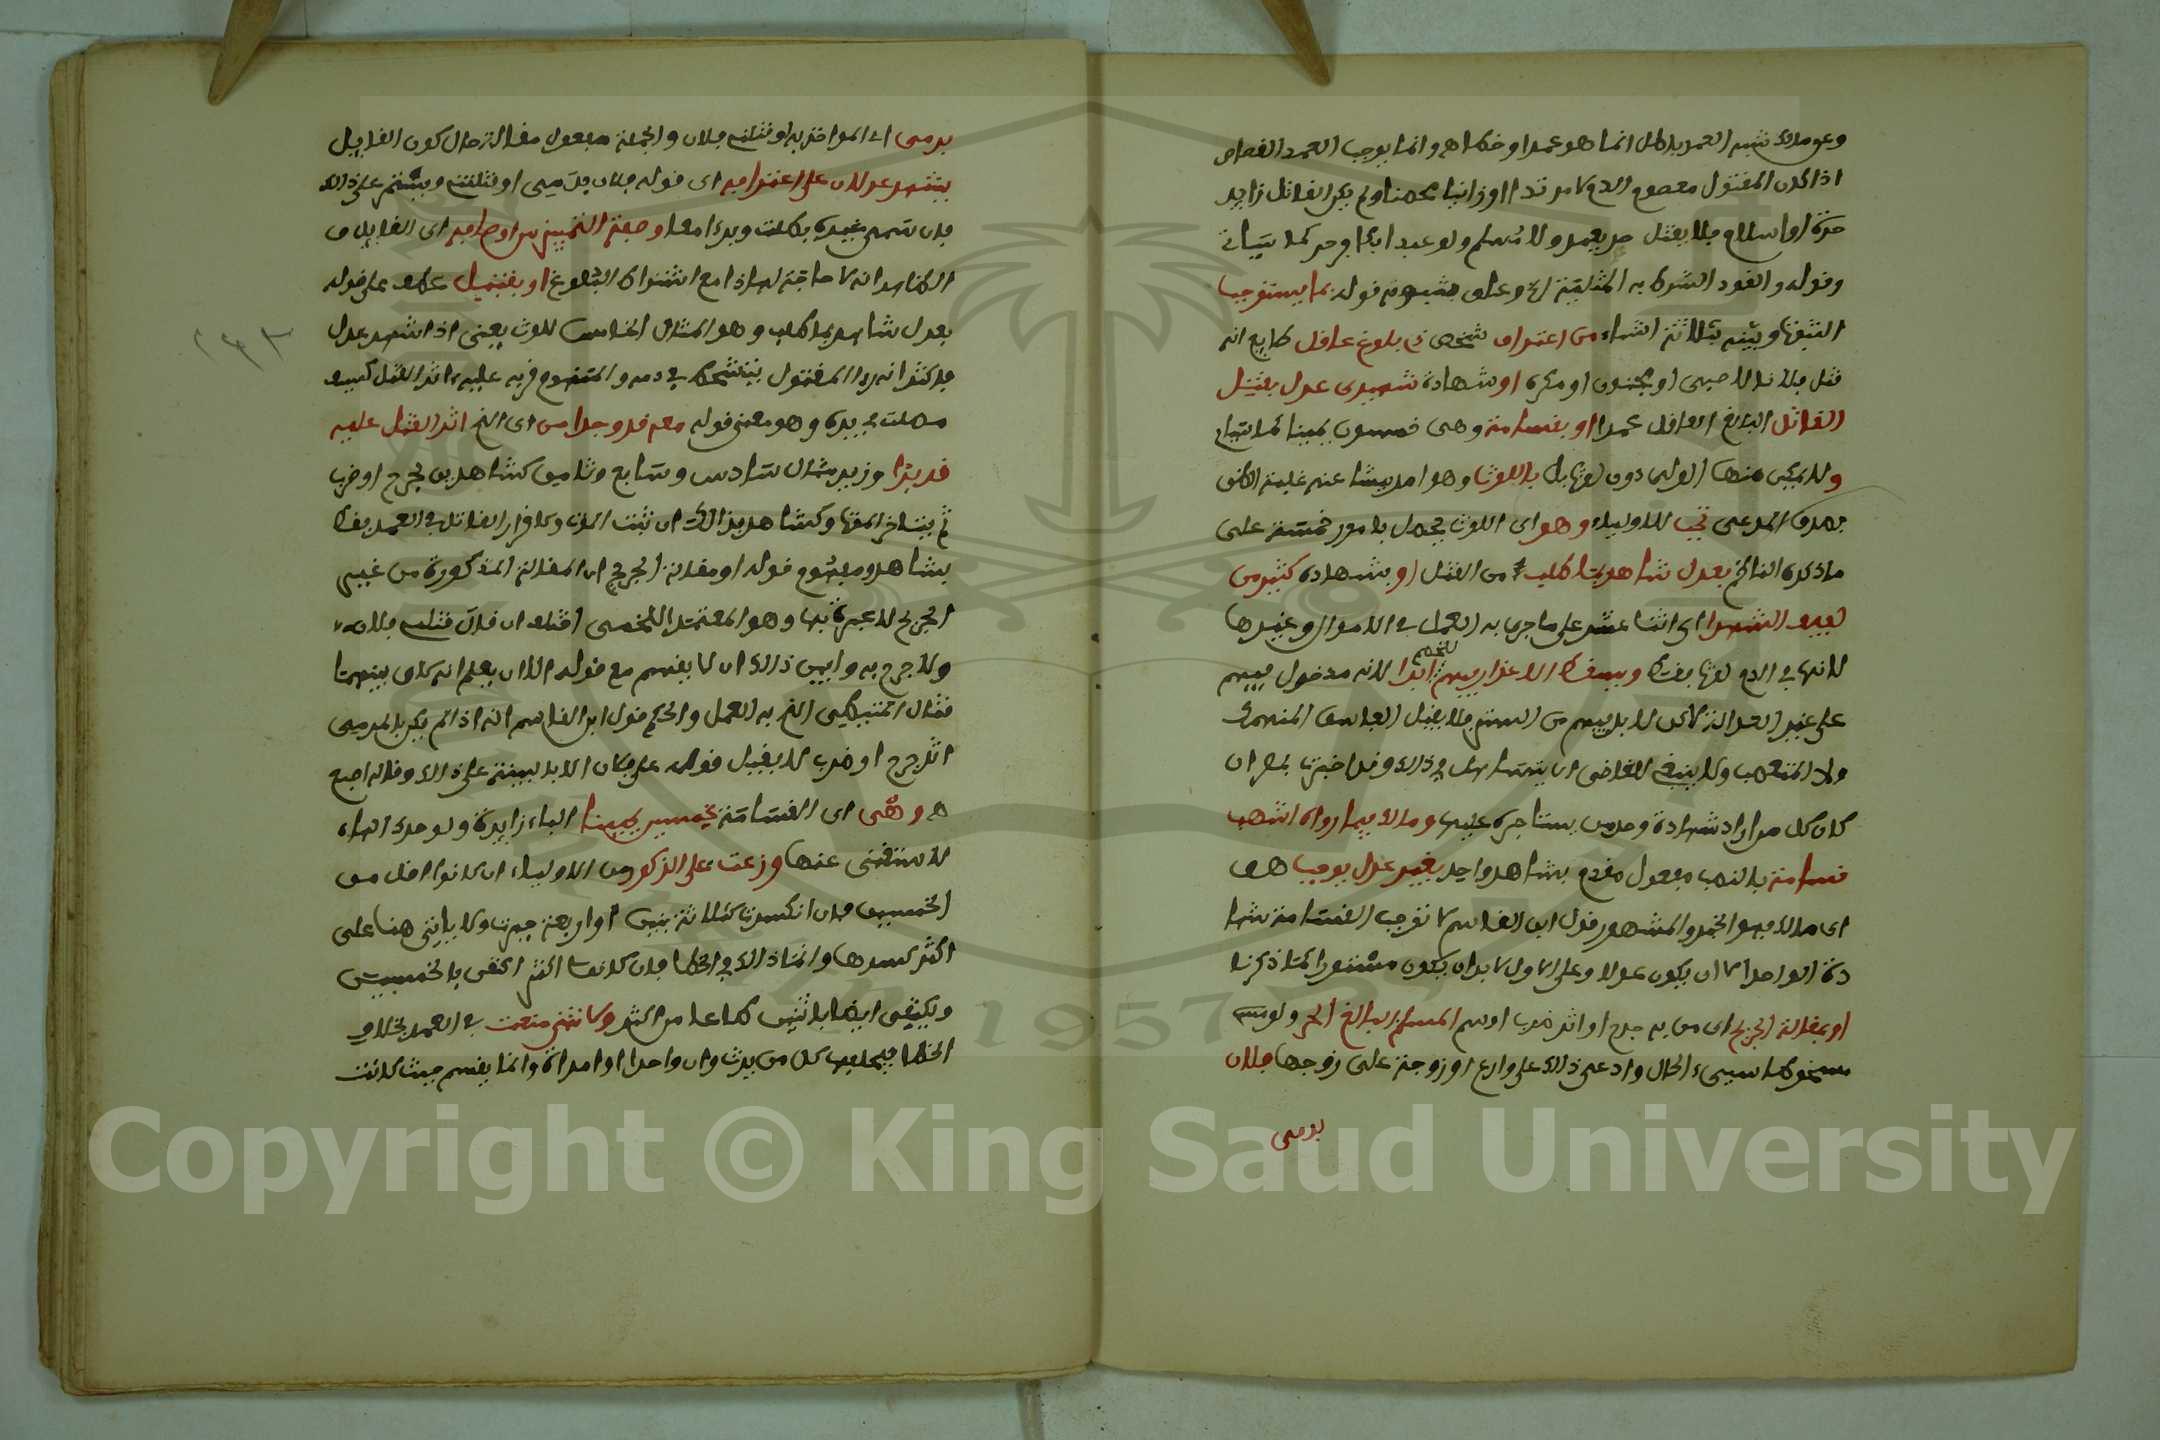 وعن مالك شبه العمد باطل انما هو عمد او خطا اهـ وانما يوجب العمد القصاص
اذا كان المقتول معصوم الدم لا مرتدا او زانيا محصنا ولم يكن القاتل زايد
حرية او اسلام فلا يقتل حر بعبد ولا مسلم ولو عبدا بكافر حر كما سياتي
وقوله والقود الشرط به المثلية الخ وعلق بثبوته قوله بما يستوجب
الثبوت وبينه بثلاثة اشياء من اعتراف شخص ذي بلوغ عاقل طايع انه
قتل فلانا لا صبي او مجنون او مكره او شهادة شهيدي عدل بقتل
القاتل البالغ العاقل عمدا او بقسامة وهي خمسون يمينا كما سياتي
ولا يمكن منها الولي دون لوث بل باللوث وهو امر ينشا عنه غلبة الظن
بصدق المدعي تجب للاولياء وهو اي اللوث يحصل بامور خمسة على
ما ذكره الناظم بعدل شاهد بما طلب من القتل او بشهادة كثير من
لفيف الشهدا اي اثنا عشر على ما جرى به العمل في الاموال وغيرها
لانها في الدم لوث فقط ويسقط الاعذار فيهم للخصم ابدا لانه مدخول فيهم
على غير العدالة لاكن لا بد فيهم من الستر فلا يقبل الفاسق المنهمك
ولا المتعصب ولا ينبغي للقاضي ان يتساهل في ذلك وقد اخبرت بمصر ان
كان كل من اراد شهادة وجد من يستاجره عليها ومالك فيما رواه اشهب
قسامة بالنصب مفعول مقدم بشاهد واحد بغير عدل يوجب هو
اي مالك فهو الخبر والمشهور قول ابن القاسم لا توجب القسامة شها
دة الواحد الا ان يكون عدلا وعلى الاول لا بد ان يكون مستورا كما ذكرنا
او بمقالة الجريح اي من به جرح او اثر ضرب او سم المسلم البالغ الحر ولو
مسخوطا سيىء الحال وادعى ذلك على وارع او زوجة على زوجها فلان
بدمي
بدمي اي المواخذ به او قتلني فلان والجملة مفعول مقالة حال كون القايل
يشهد عدلان على اعترافه اي قوله فلان بدمي او قتلني ويستمر على ذلك
فان سمى غيره بطلت وبدا معا وصفة التمييز من اوصافه اي القايل
الظاهر انه لا حاجة لهذا مع اشتراط البلوغ او بقتيل عطف على قوله
بعدل شاهد بما طلب وهو المثال الخامس للوث يعني اذا شهد عدل
فاكثر انه را المقتول يتشحط في دمه والمتهم قربه عليه اثر القتل كسيف
مصلت بيده وهو معنى قوله معه قد وجدا من اي الذي اثر القتل عليه
قد بدا وزيد مثال سادس وسابع وثامن كشاهدين بجرح او ضرب
ثم يتاخر الموت وكشاهد بذلك ان ثبت الموت وكاقرار القاتل في العمد فقط
بشاهد ومفهوم قوله او بمقالة الجريح ان المقالة المذكورة من غير
الجريح لا عبرة بها وهو المعتمد اللخمي اختلف ان قال قتلني فلان
ولا جرح به وابين ذلك ان لا يقسم مع قوله الا ان يعلم انه كان بينهما
قتال المتيطي الذي به العمل والحكم قول ابن القاسم انه اذا لم يكن بالمدمي
اثر جرح او ضرب لا يقبل قوله على فلان الا بالبينة على ذلك وقاله اصبغ
هـ وهي اي القسامة بخمسين يمينا الباء زايدة ولو حذف الهاء
لاستغنى عنها وزعت على الذكور من الاولياء ان كانوا اقل من
الخمسين فان انكسرت كثلاثة بنين او اربعة جبرت ولا ياتي هنا على
اكثر كسرها وانما ذلك في الخطا فان كانوا اكثر اكتفي بالخمسين
ويكتفى ايضا باثنين طاعا من اكثر ولانثى منعت في العمد بخلاف
الخطا فيحلف كل من يرث وان واحدا او امراة وانما يقسم حيث كانت